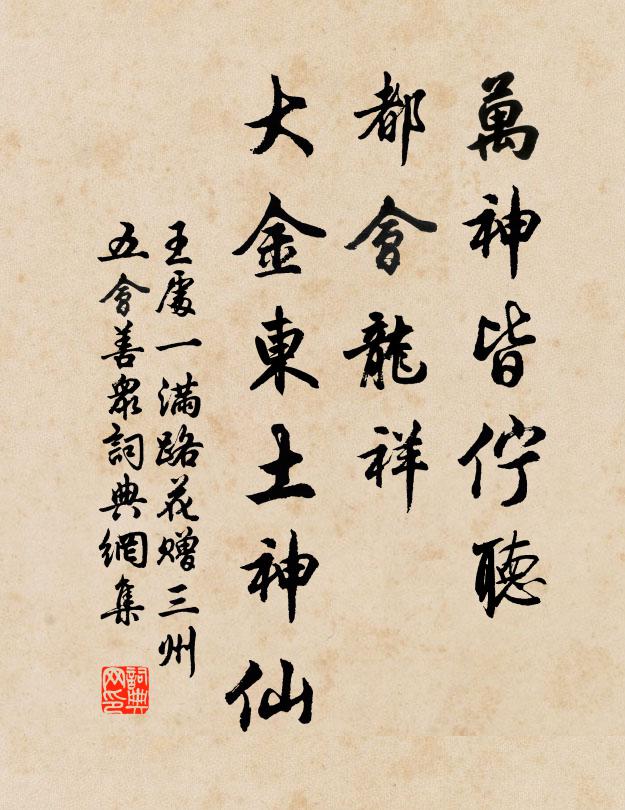 萬神皆佇聽
都會龍祥
大金東土神仙
王處一滿路花贈三州
五會善眾詞典網集
詞典網印